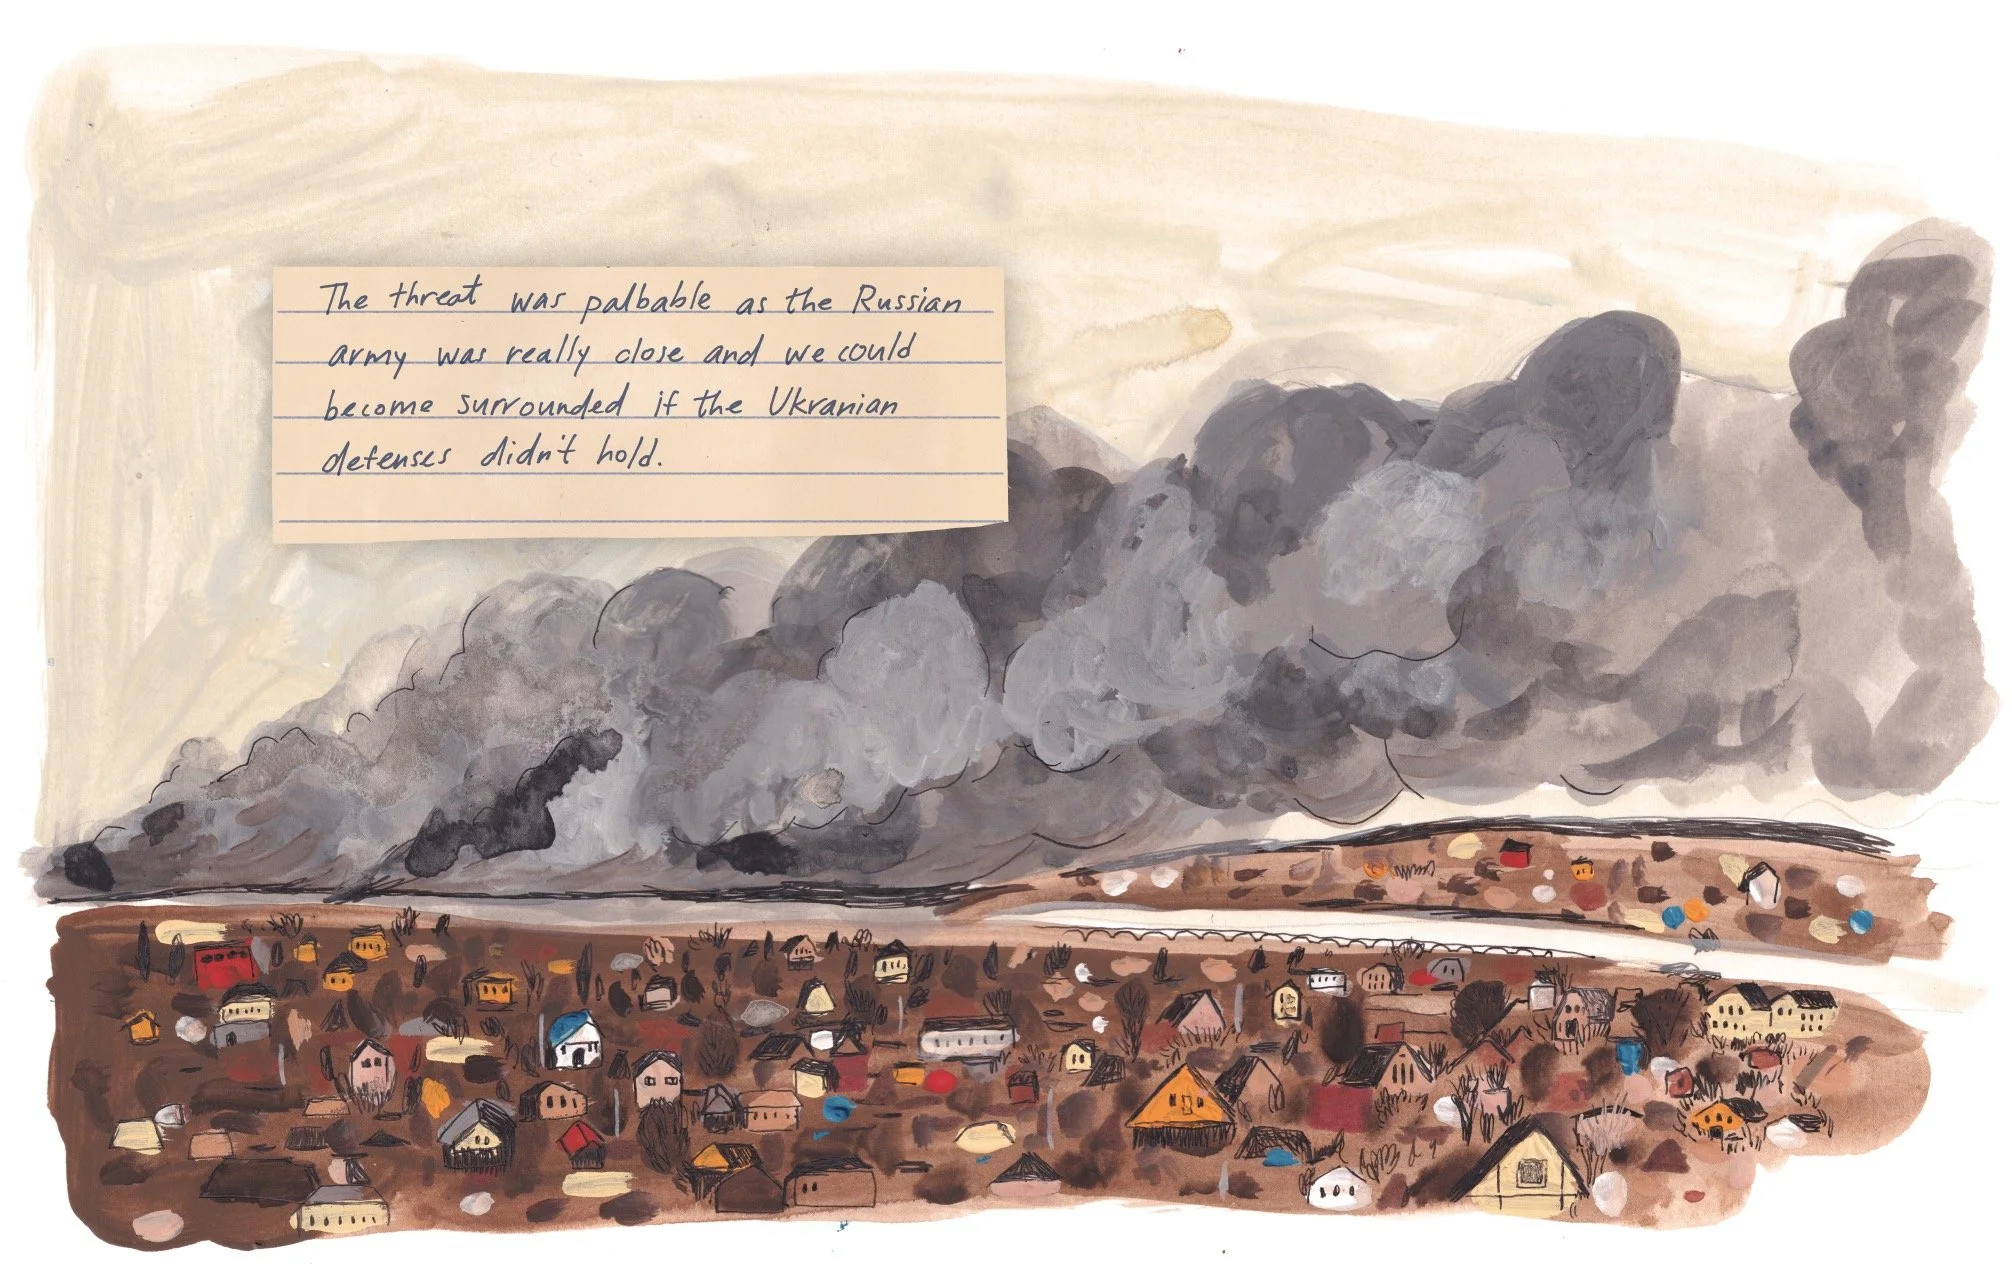 The threat was palbable as the Russian
army was really close and we could
become surrounded if the Ukranian
defenses didn't hold.